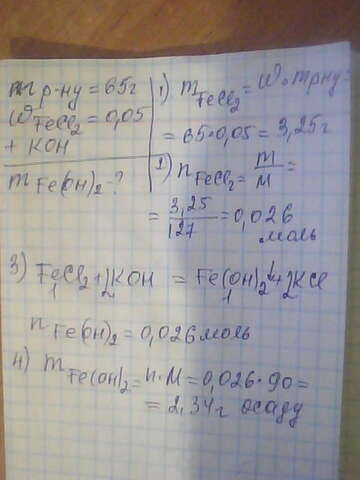 m р-ну = 65г
W FeCl₂ = 0,05
+ KOH
m Fe(OH)₂ - ?
1) m FeCl₂ = W · m р-ну =
= 65·0,05 = 3,25г
2) n FeCl₂ = m/M =
= 3,25/127 = 0,026
моль
3) FeCl₂ + 2KOH = Fe(OH)₂↓ + 2KCl
1 2 1 2
n Fe(OH)₂ = 0,026 моль
4) m Fe(OH)₂ = n·M = 0,026·90 =
= 2,34г осаду